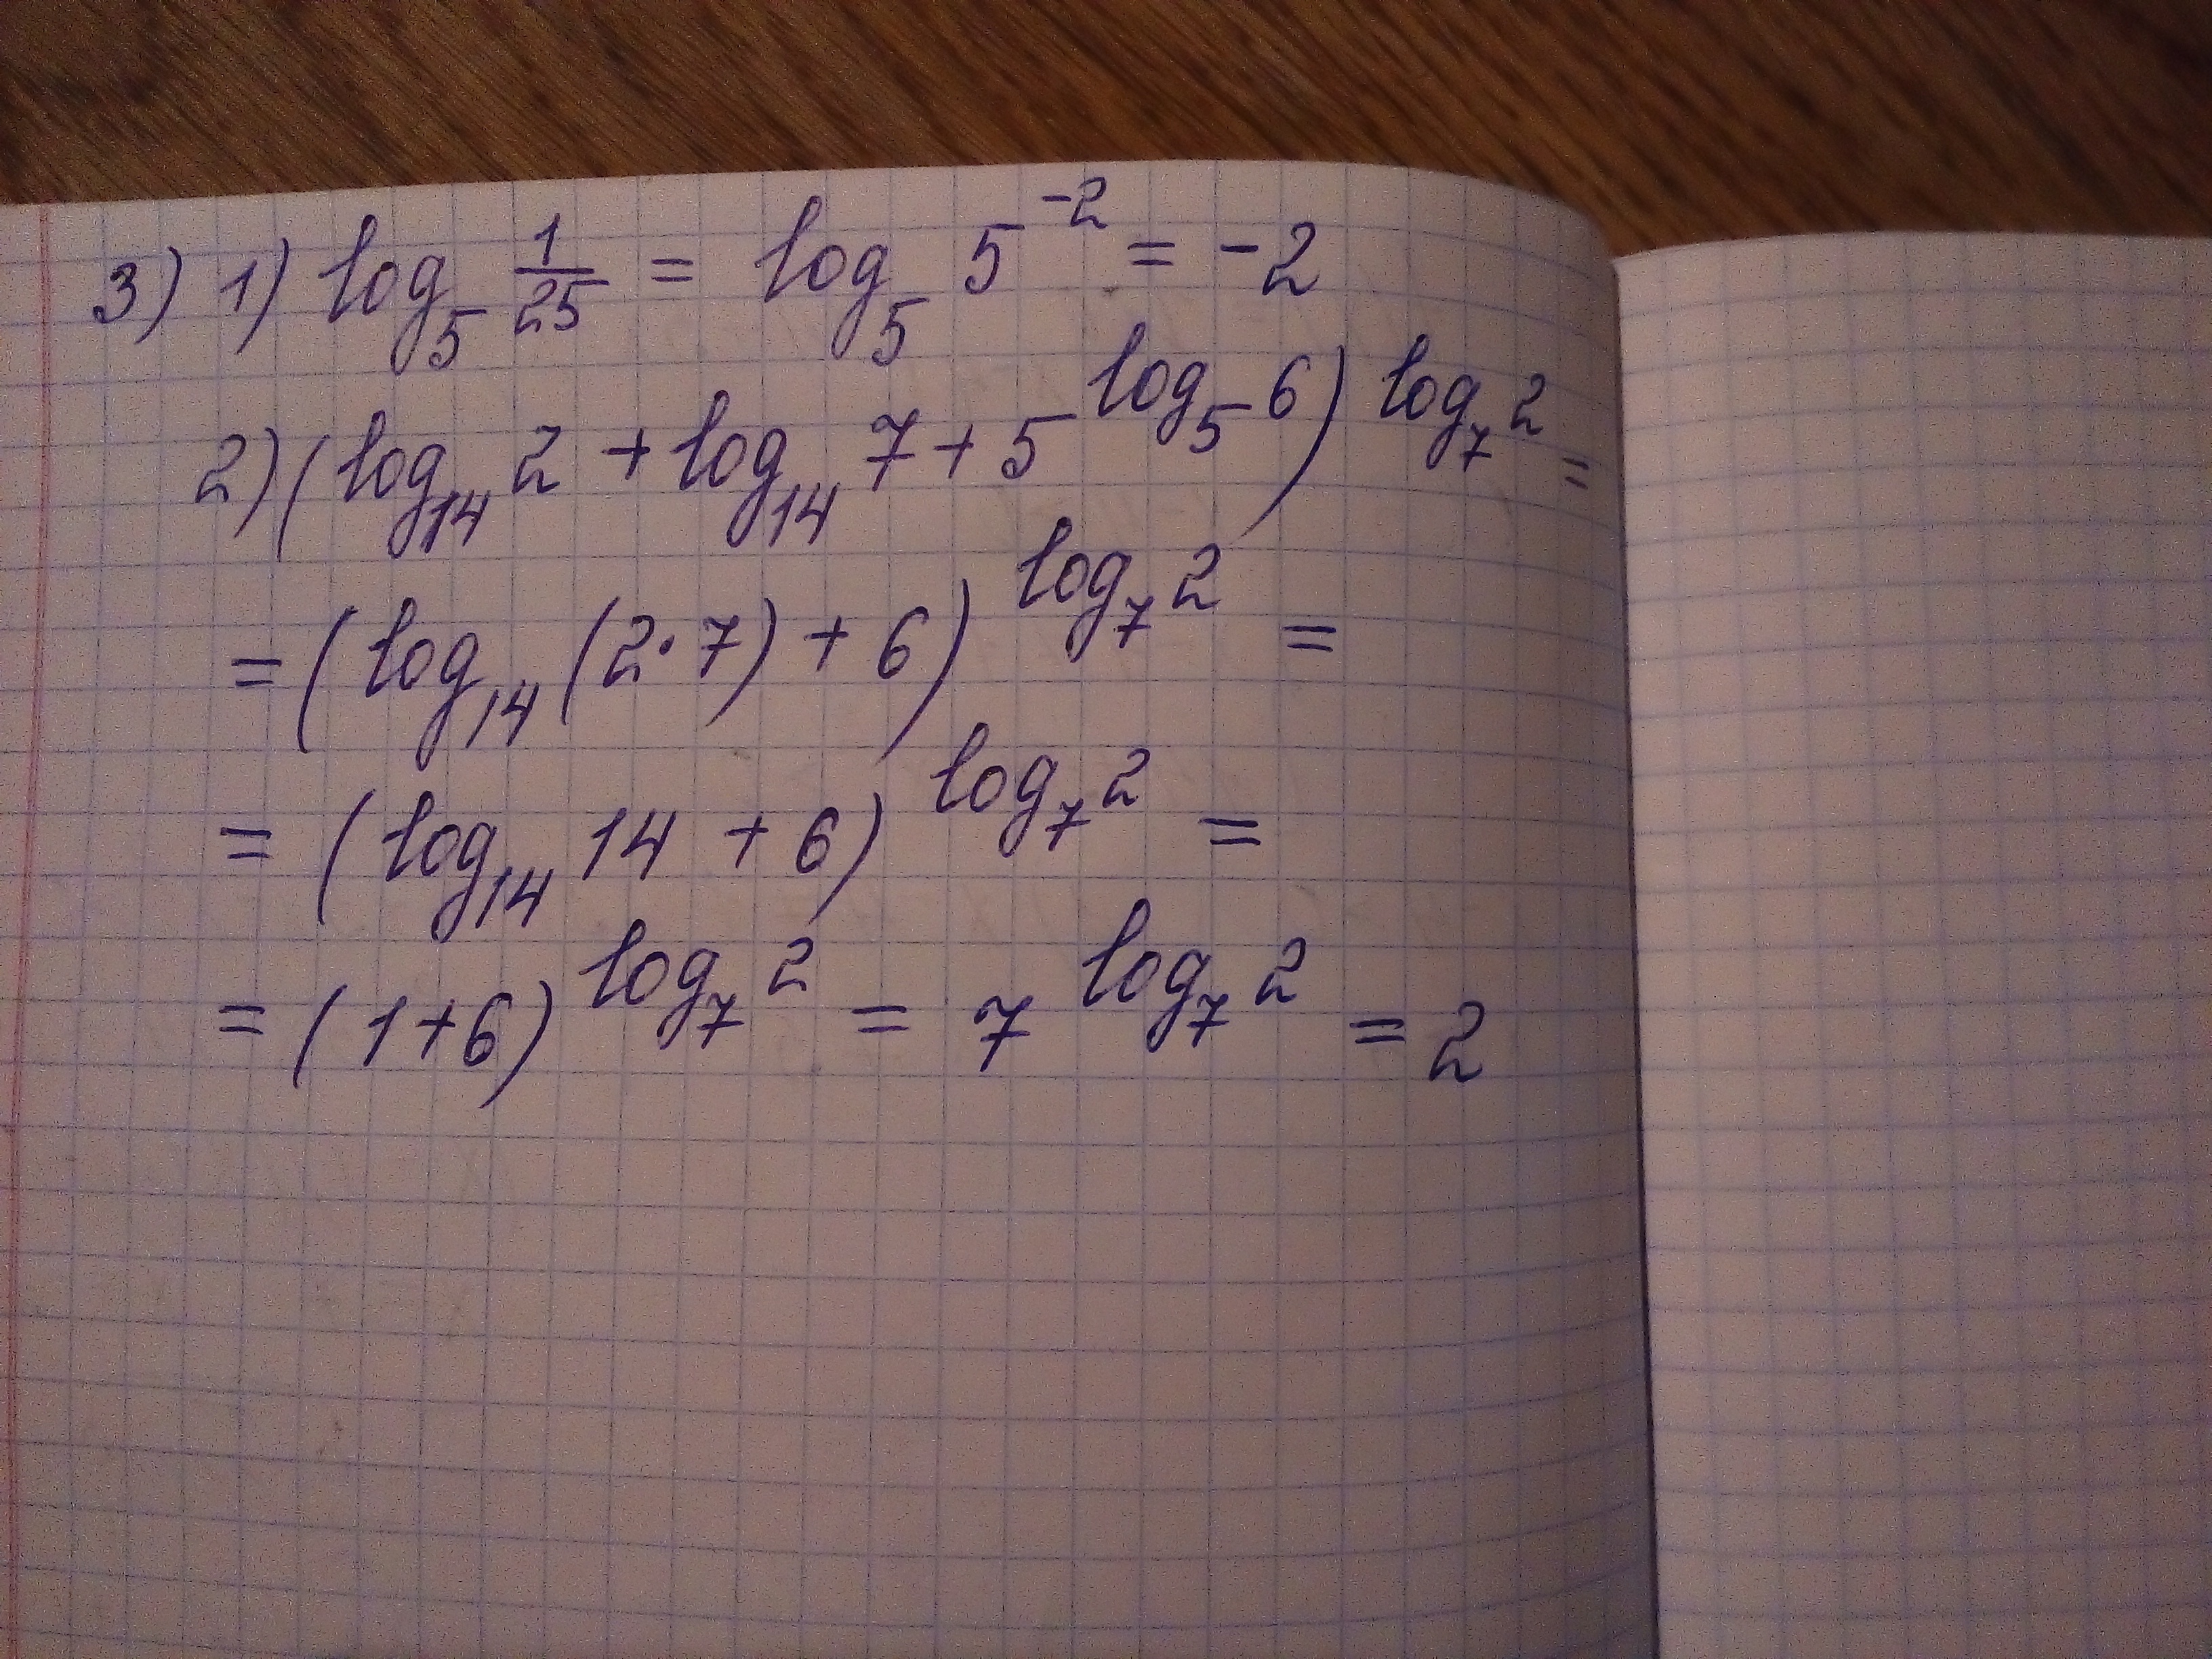 3) 1) log₅ 1/25 = log₅ 5⁻² = -2
2) (log₁₄ 2 + log₁₄ 7 + 5^(log₅ 6))^(log₇ 2) =
= (log₁₄ (2·7) + 6)^(log₇ 2) =
= (log₁₄ 14 + 6)^(log₇ 2) =
= (1+6)^(log₇ 2) = 7^(log₇ 2) = 2